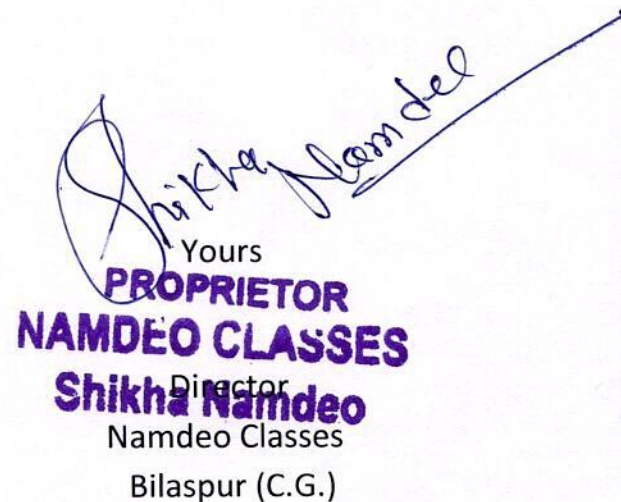 Shikha Namdeo
Yours
PROPRIETOR
NAMDEO CLASSES
Director
Shikha Namdeo
Namdeo Classes
Bilaspur (C.G.)